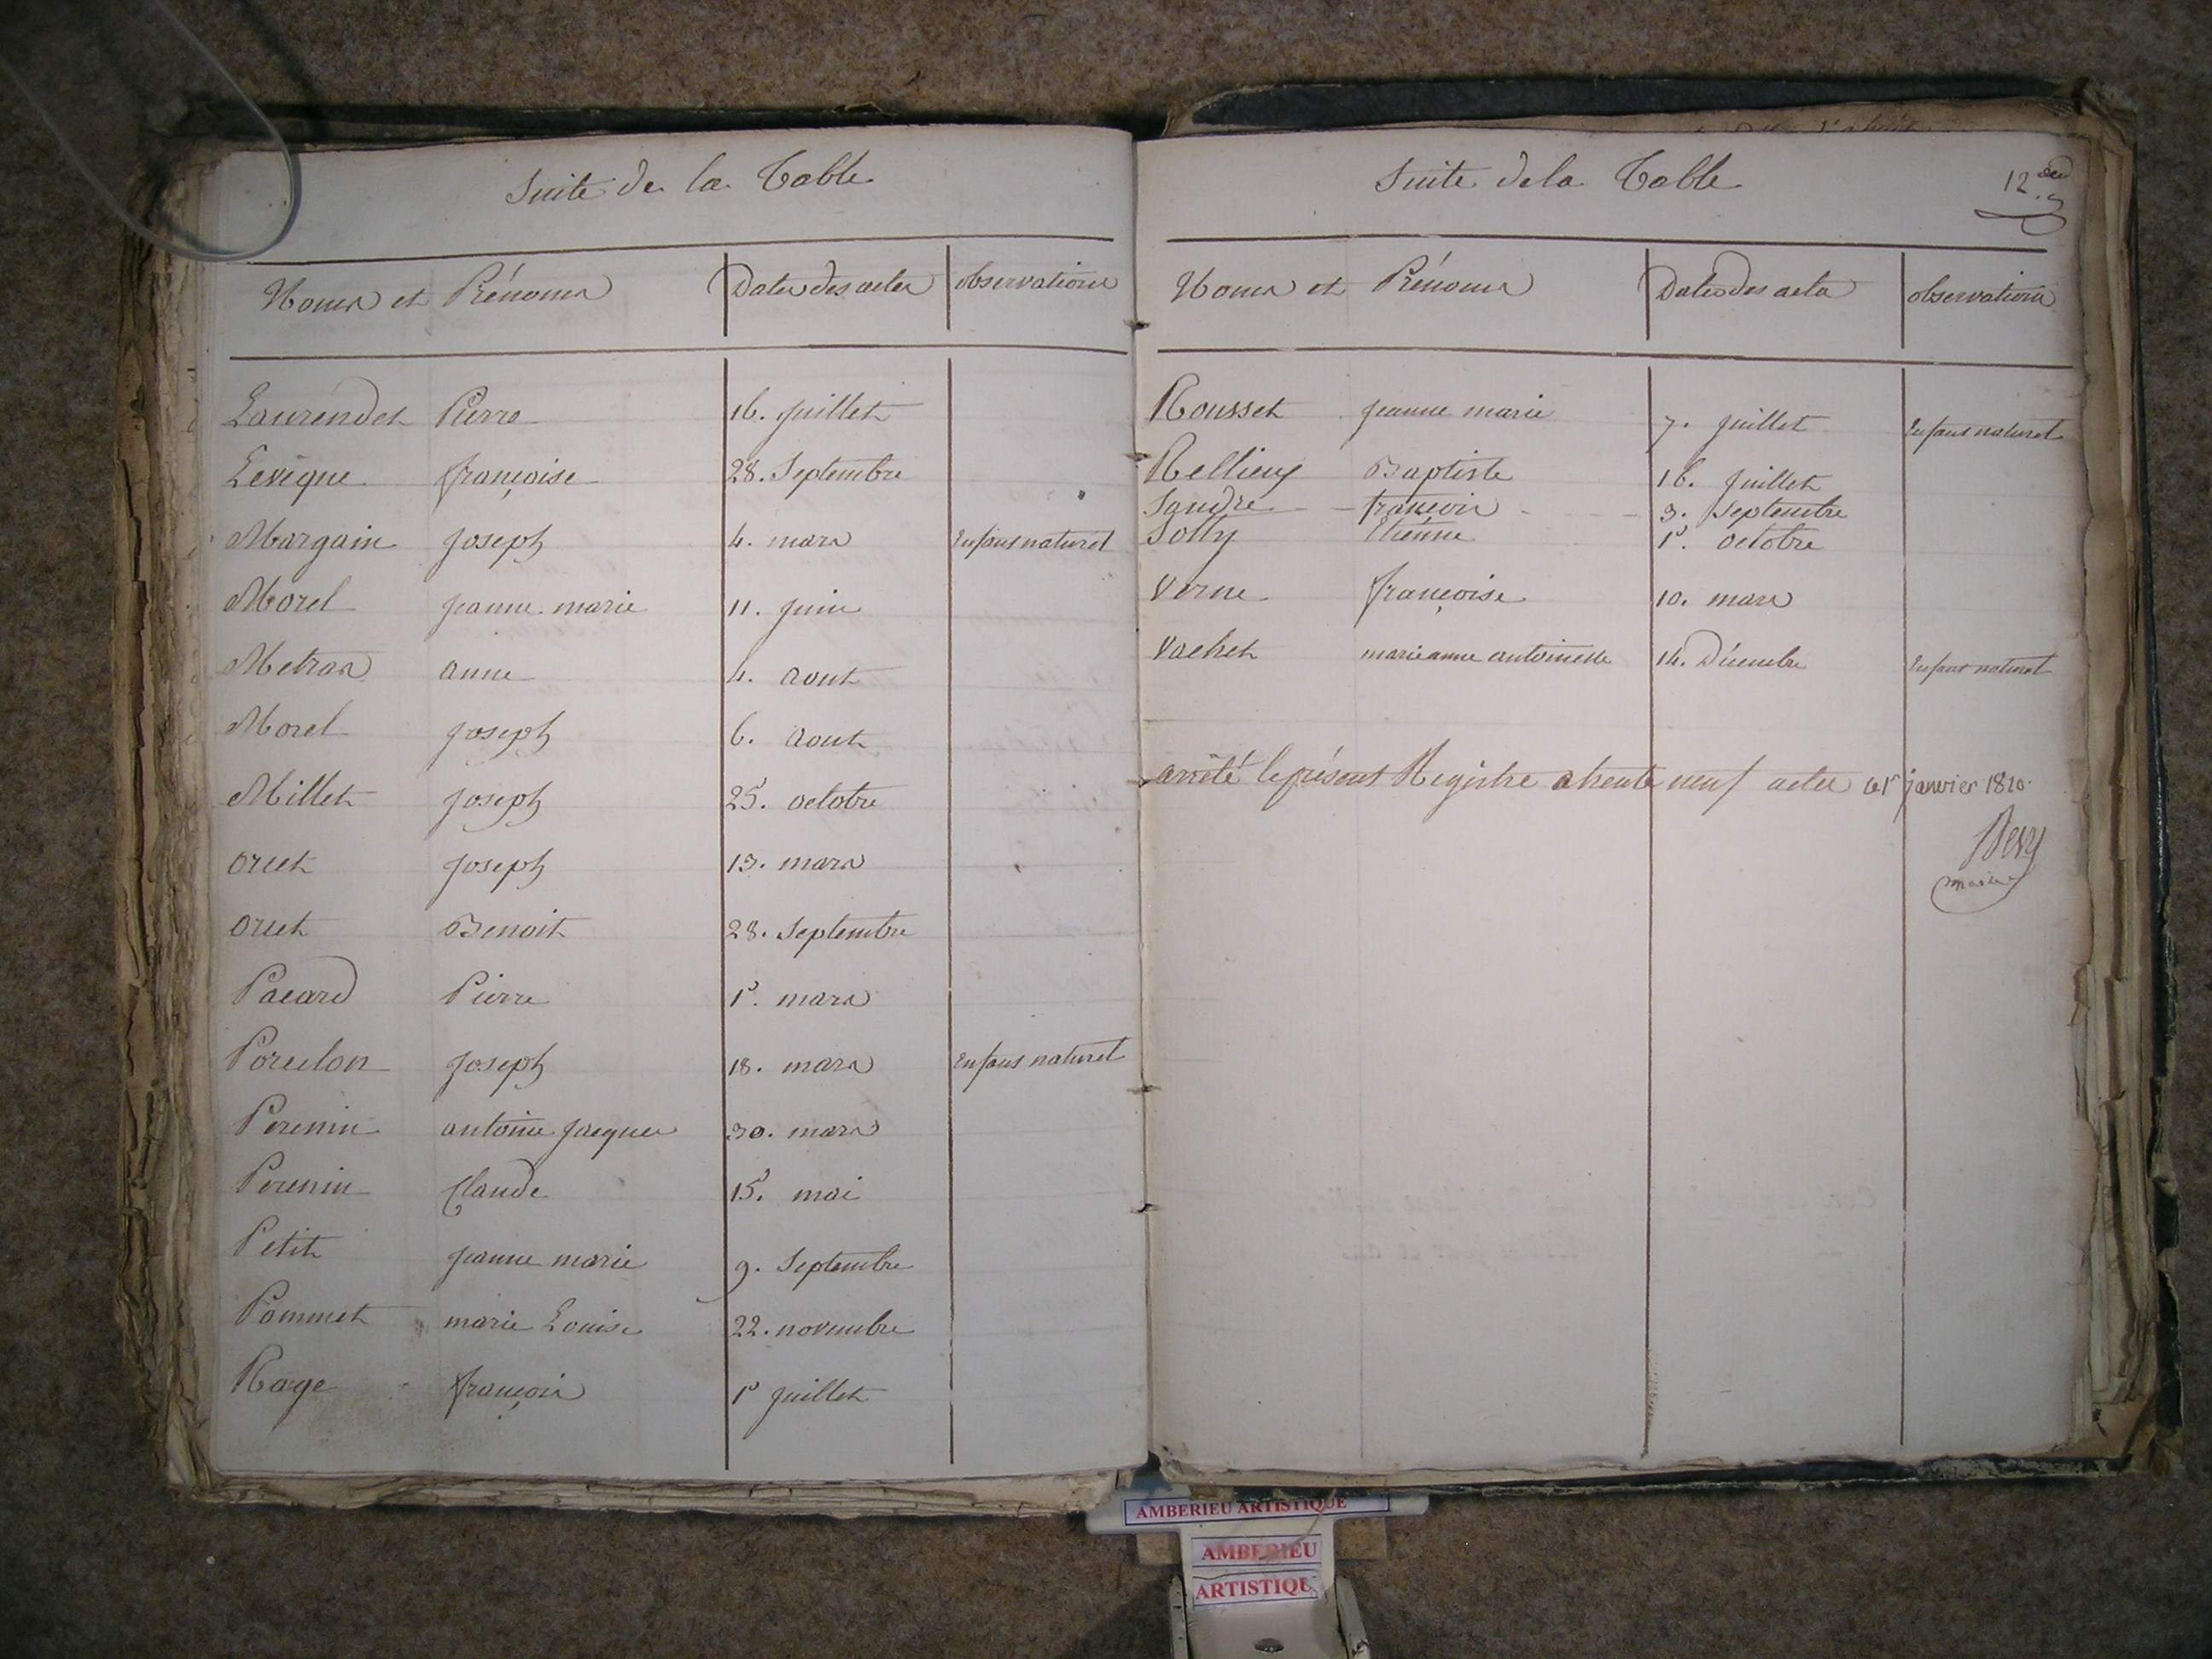 Suite de la Table
Noms et Prénoms Dates des actes observations
Laurendet Pierre 16. juillet
Levêque françoise 28. Septembre
Margain joseph 4. mars Enfant naturel
Morel jeanne marie 11. juin
Metras anne 4. aout
Morel joseph 6. aout
Millet joseph 25. octobre
oruet joseph 13. mars
oruet Benoit 28. Septembre
Pacard Pierre 1er. mars
Porcelon joseph 18. mars Enfant naturel
Perenin antoine jacques 30. mars
Perenin Claude 15. mai
Petit jeanne marie 9. Septembre
Pommet marie Louise 22. novembre
Rage françois 1er juillet
Suite de la Table
12
Noms et Prénoms Dates des actes observations
Rousset jeanne marie 7. juillet Enfant naturel
Rellieux Baptiste 16. juillet
Sandre françois 3. Septembre
Solly Etienne 1er. octobre
Verne françoise 10. mars
Vachet marie anne antoinette 14. Décembre Enfant naturel
arrêté le présent Registre a trente neuf actes ce 1er janvier 1820.
maire
AMBERIEU ARTISTIQUE
AMBERIEU
ARTISTIQUE